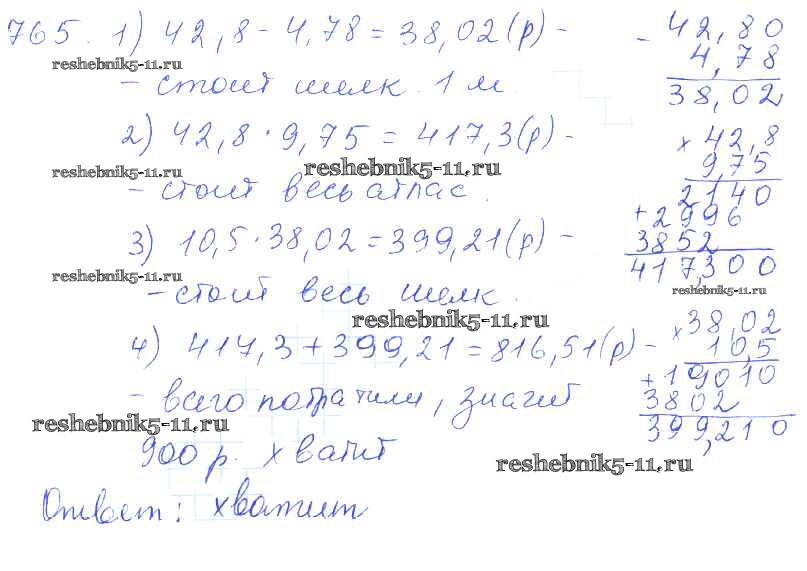 765. 1) 42,8 - 4,78 = 38,02 (р) -
reshebnik5-11.ru
- стоит шелк 1 м.
2) 42,8 · 9,75 = 417,3 (р) -
reshebnik5-11.ru
reshebnik5-11.ru
- стоит весь атлас.
3) 10,5 · 38,02 = 399,21 (р) -
reshebnik5-11.ru
- стоит весь шелк.
reshebnik5-11.ru
4) 417,3 + 399,21 = 816,51 (р) -
- всего потратили, значит
reshebnik5-11.ru
900 р. хватит
Ответ: хватит
- 42,80
4,78
38,02
× 42,8
9,75
2140
+ 2996
3852
417,300
reshebnik5-11.ru
× 38,02
10,5
+ 19010
3802
399,210
reshebnik5-11.ru